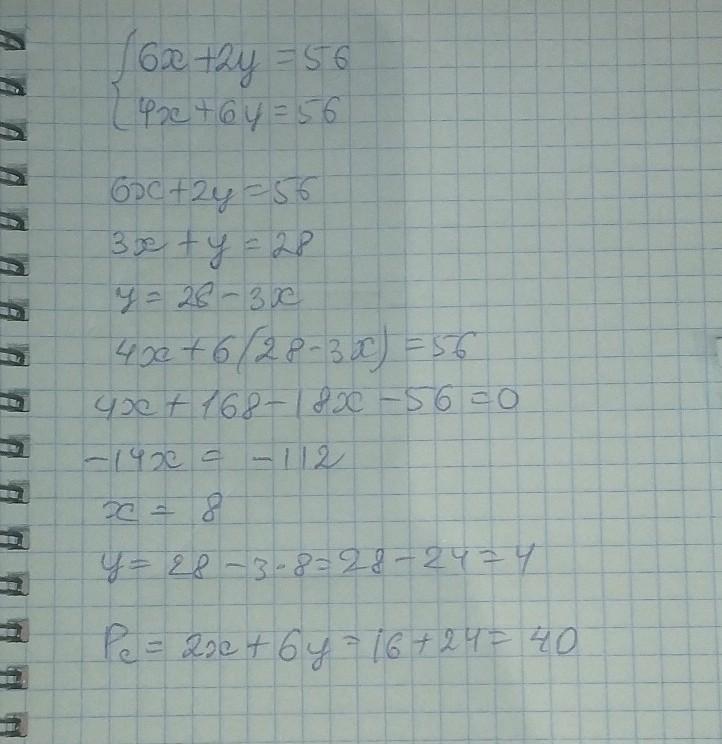 {6x+2y=56
{4x+6y=56
6x+2y=56
3x+y=28
y=28-3x
4x+6(28-3x)=56
4x+168-18x-56=0
-14x=-112
x=8
y=28-3·8=28-24=4
Pc=2x+6y=16+24=40